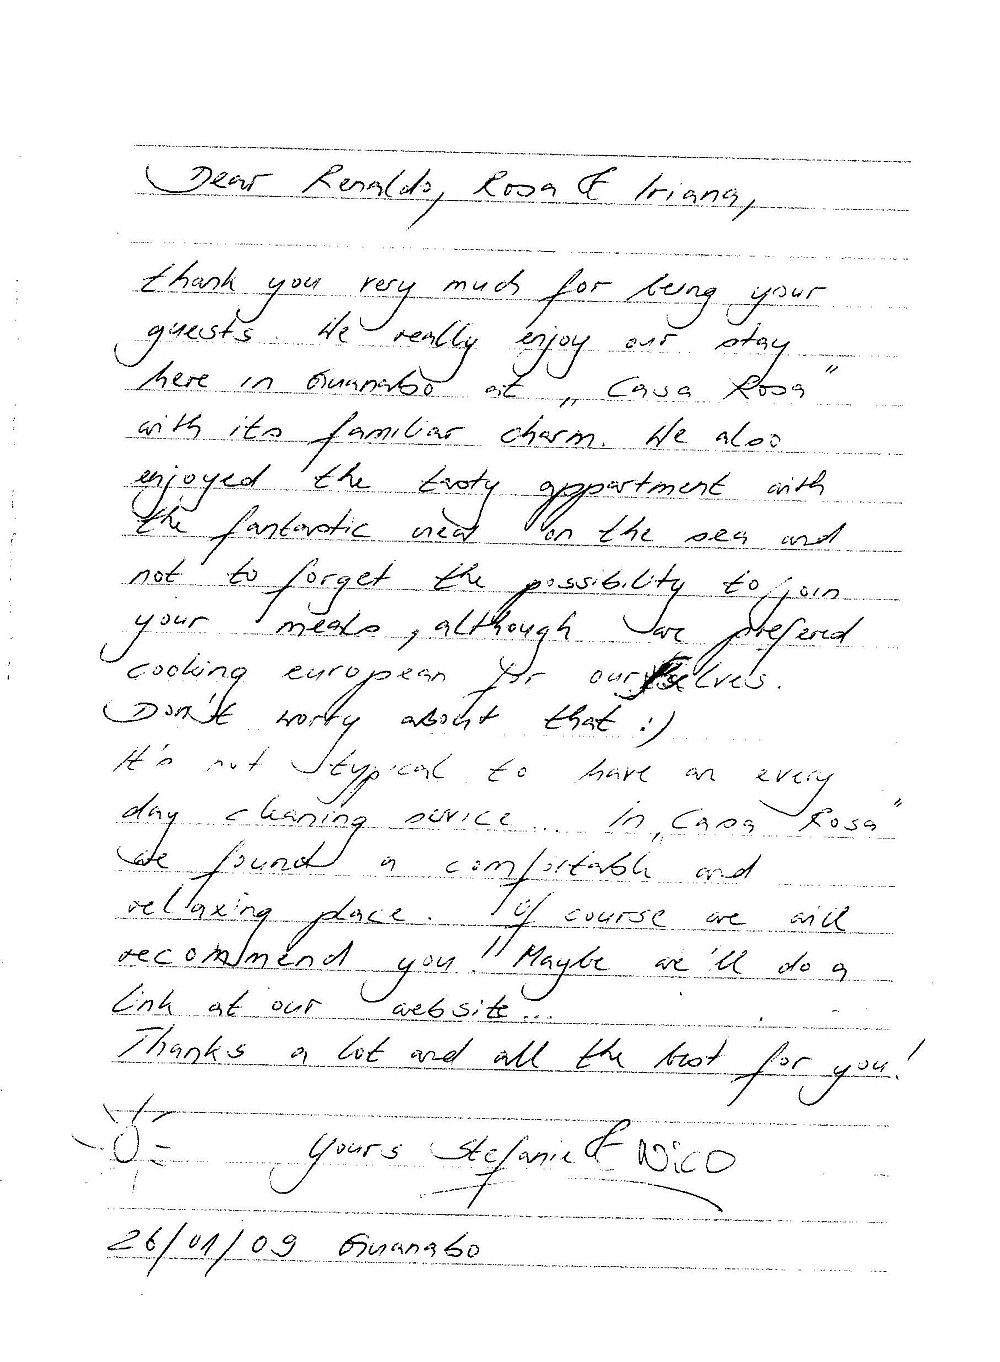 Dear Renaldo, Rosa & Iriana,
thank you very much for being your
guests. We really enjoy our stay
here in Guanabo at „Casa Rosa"
with its familiar charm. We also
enjoyed the tasty appartment with
the fantastic view on the sea and
not to forget the possibility to join
your meals, although we prefered
cooking european for ourselves.
Don't worry about that :)
It's not typical to have an every
day cleaning service... In „Casa Rosa"
we found a comfortable and
relaxing place. Of course we will
recommend you! Maybe we'll do a
link at our website...
Thanks a lot and all the best for you!
Yours Stefanie & Nico
26/01/09 Guanabo